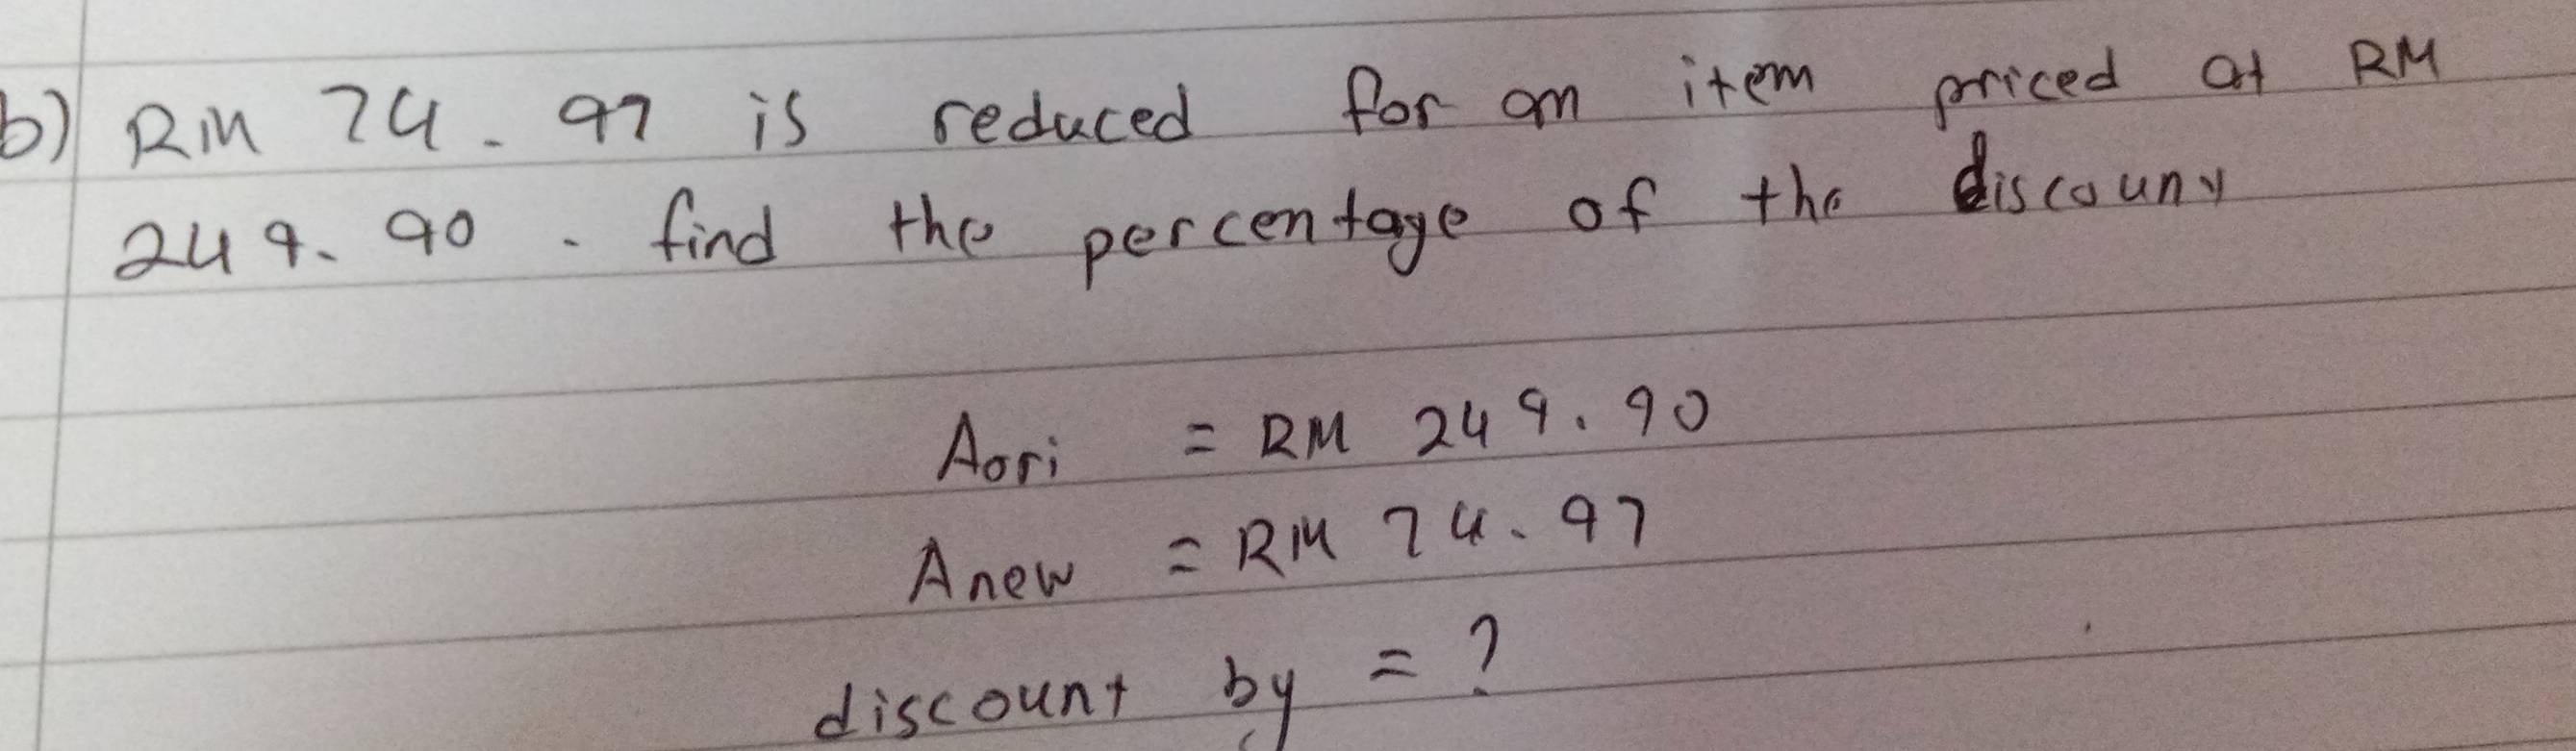 b) RM 74.97 is reduced for an item priced at RM
249.90. find the percentage of the discount
Aori = RM 249.90
Anew = RM 74.97
discount by = ?